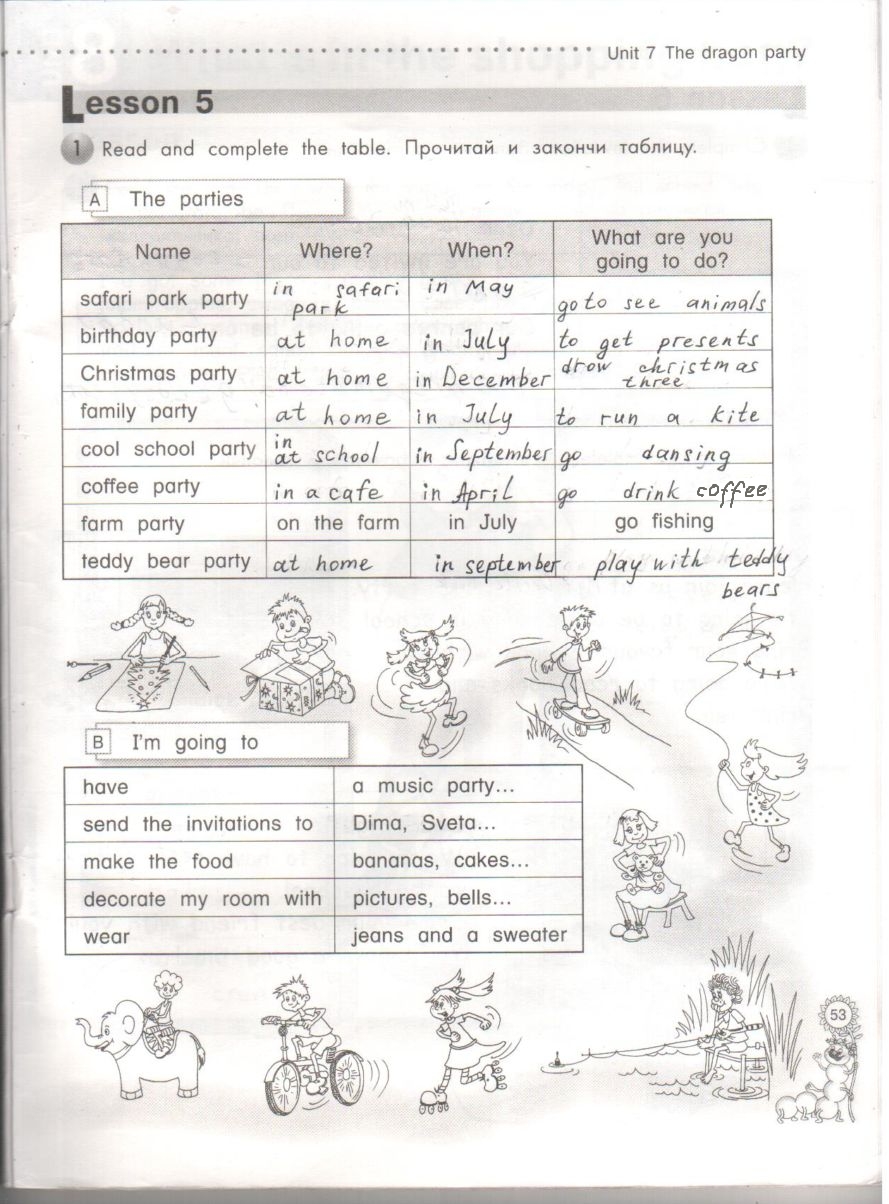 Unit 7 The dragon party
Lesson 5
1 Read and complete the table. Прочитай и закончи таблицу.
A The parties
Name Where? When? What are you going to do?
safari park party in safari park in May go to see animals
birthday party at home in July to get presents
Christmas party at home in December drow christmas three
family party at home in July to run a kite
cool school party in at school in September go dansing
coffee party in a cafe in April go drink coffee
farm party on the farm in July go fishing
teddy bear party at home in september play with teddy bears
B I'm going to
have a music party...
send the invitations to Dima, Sveta...
make the food bananas, cakes...
decorate my room with pictures, bells...
wear jeans and a sweater
53